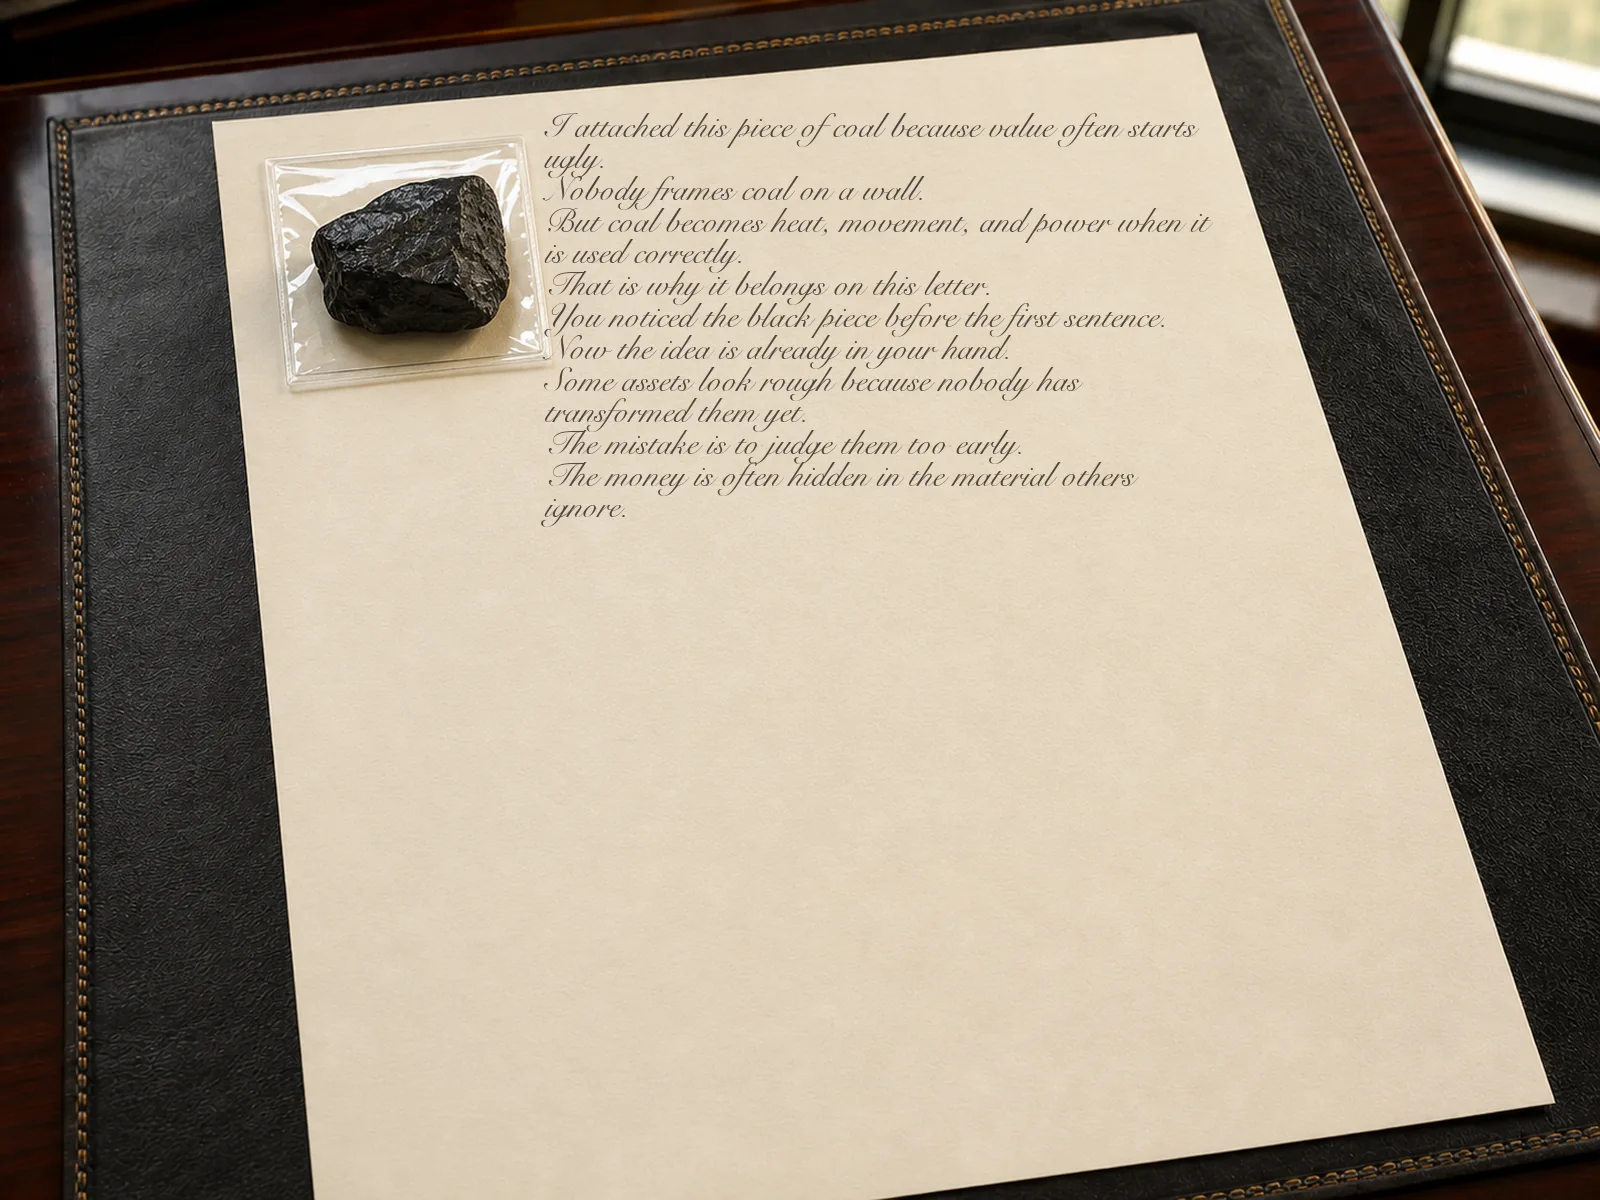 I attached this piece of coal because value often starts
ugly.
Nobody frames coal on a wall.
But coal becomes heat, movement, and power when it
is used correctly.
That is why it belongs on this letter.
You noticed the black piece before the first sentence.
Now the idea is already in your hand.
Some assets look rough because nobody has
transformed them yet.
The mistake is to judge them too early.
The money is often hidden in the material others
ignore.